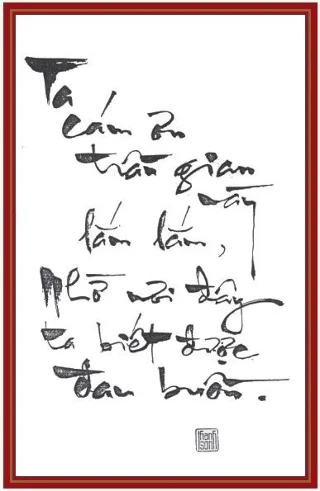 Ta
cám ơn
trần gian
này
lắm lắm,
Nhờ nơi đây
ta biết được
đau buồn.